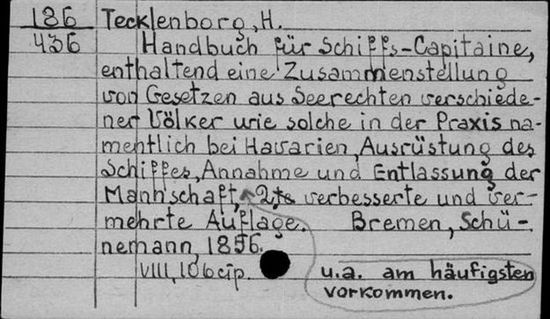 186 Tecklenborg, H.
436 Handbuch für Schiffs-Capitaine,
enthaltend eine Zusammenstellung
von Gesetzen aus Seerechten verschiede-
ner Völker wie solche in der Praxis na-
mentlich bei Havarien, Ausrüstung des
Schiffes, Annahme und Entlassung der
Mannschaft, 2te verbesserte und ver-
mehrte Auflage. Bremen, Schü-
nemann, 1856.
VIII, 106 стр.
u.a. am häufigsten
vorkommen.